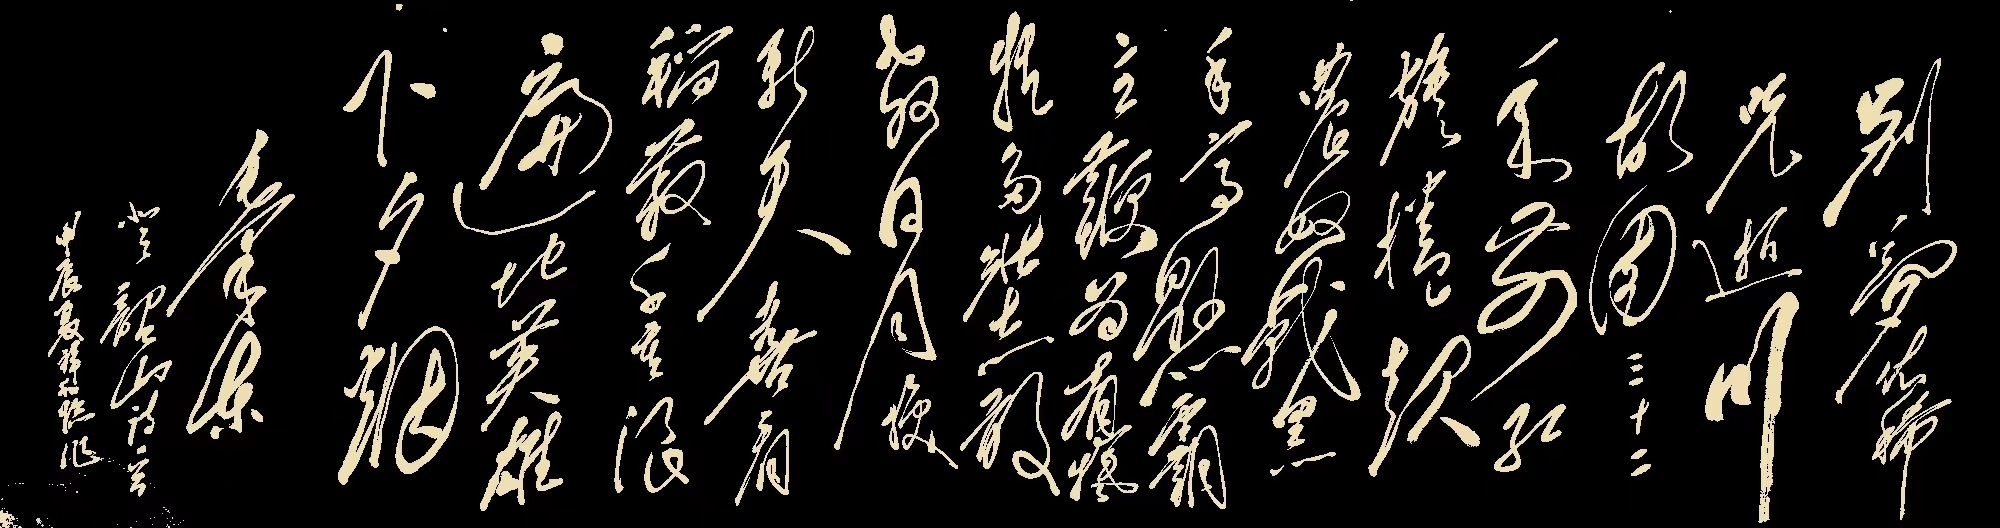 别梦依稀
咒逝川
故园三十二
年前红
旗捲起
農奴戟黑
手高懸霸
主鞭为有犧
牲多壮志敢
教日月换
新天喜看
稻菽千重浪
遍地英雄
下夕烟
毛泽东
登韶山诗一首
甲辰夏